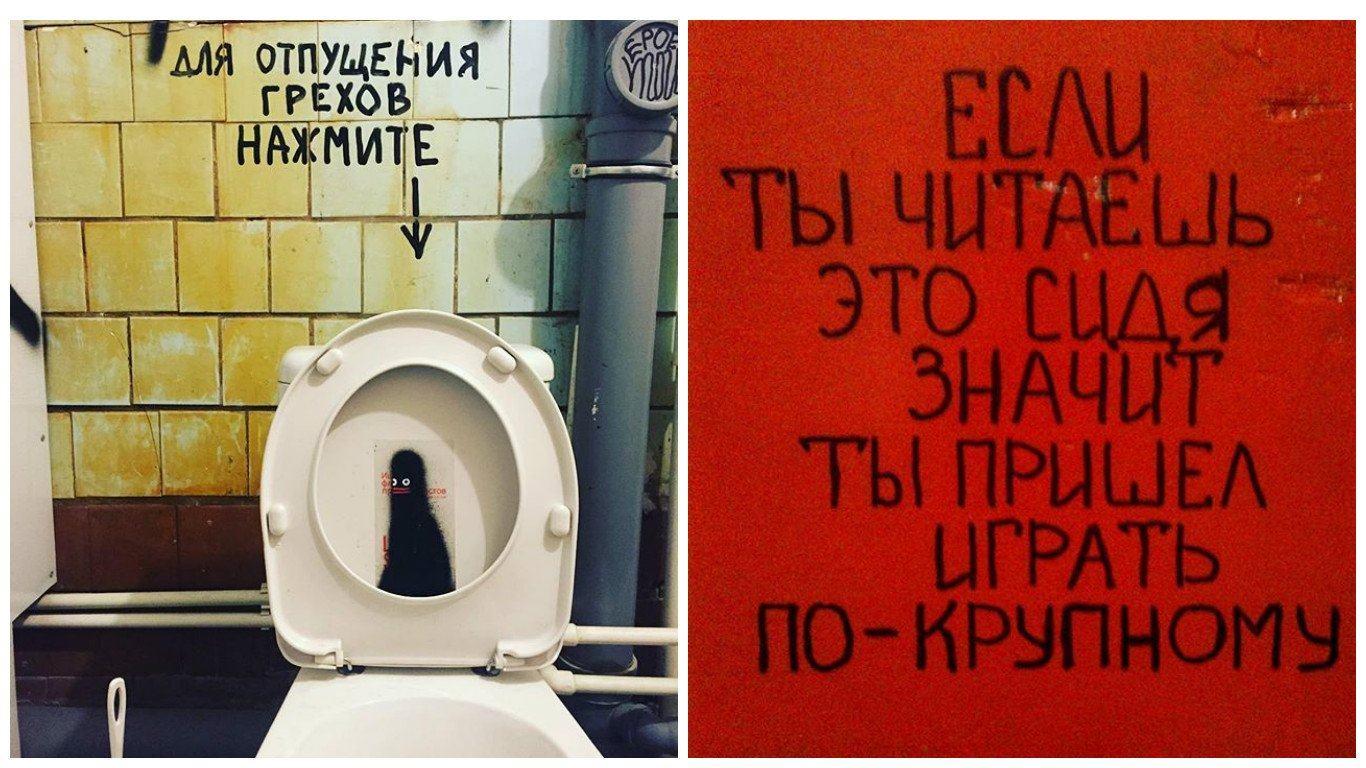 ДЛЯ ОТПУЩЕНИЯ
ГРЕХОВ
НАЖМИТЕ
ЕСЛИ
ТЫ ЧИТАЕШЬ
ЭТО СИДЯ
ЗНАЧИТ
ТЫ ПРИШЕЛ
ИГРАТЬ
ПО-КРУПНОМУ